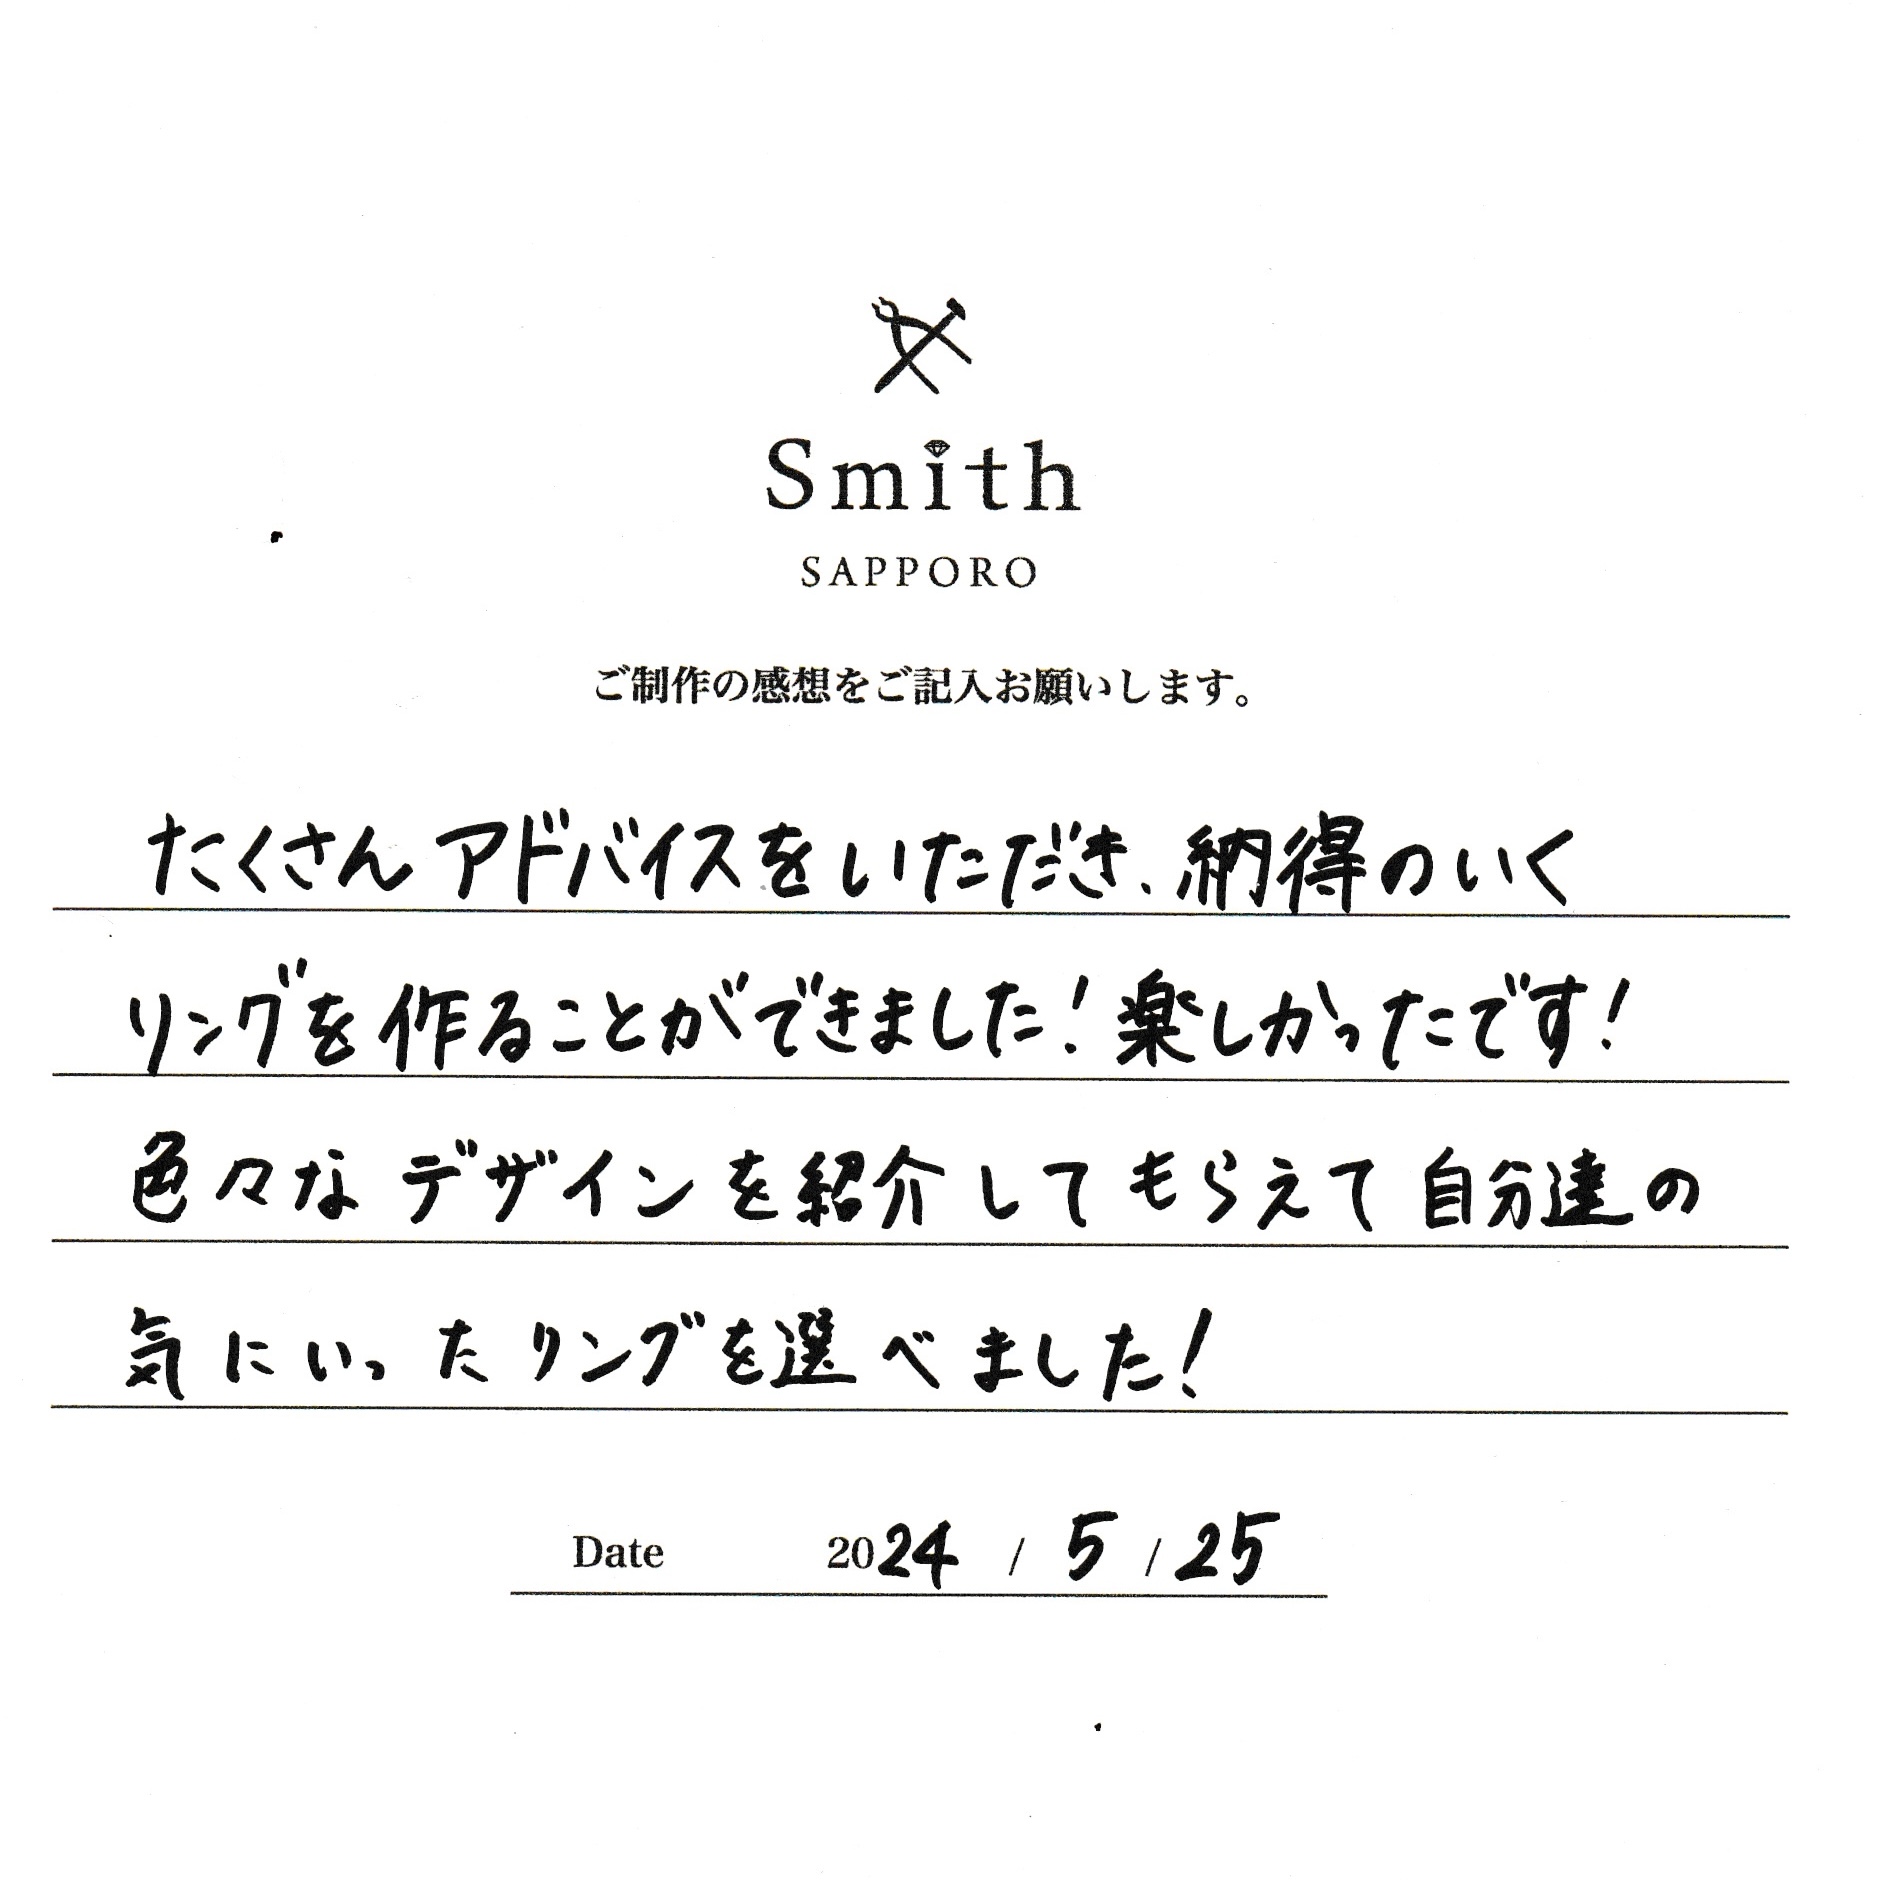 Smith
SAPPORO
ご制作の感想をご記入お願いします。
たくさんアドバイスをいただき、納得のいく
リングを作ることができました!楽しかったです!
色々なデザインを紹介してもらえて自分達の
気にいったリングを選べました!
Date 2024 / 5 / 25